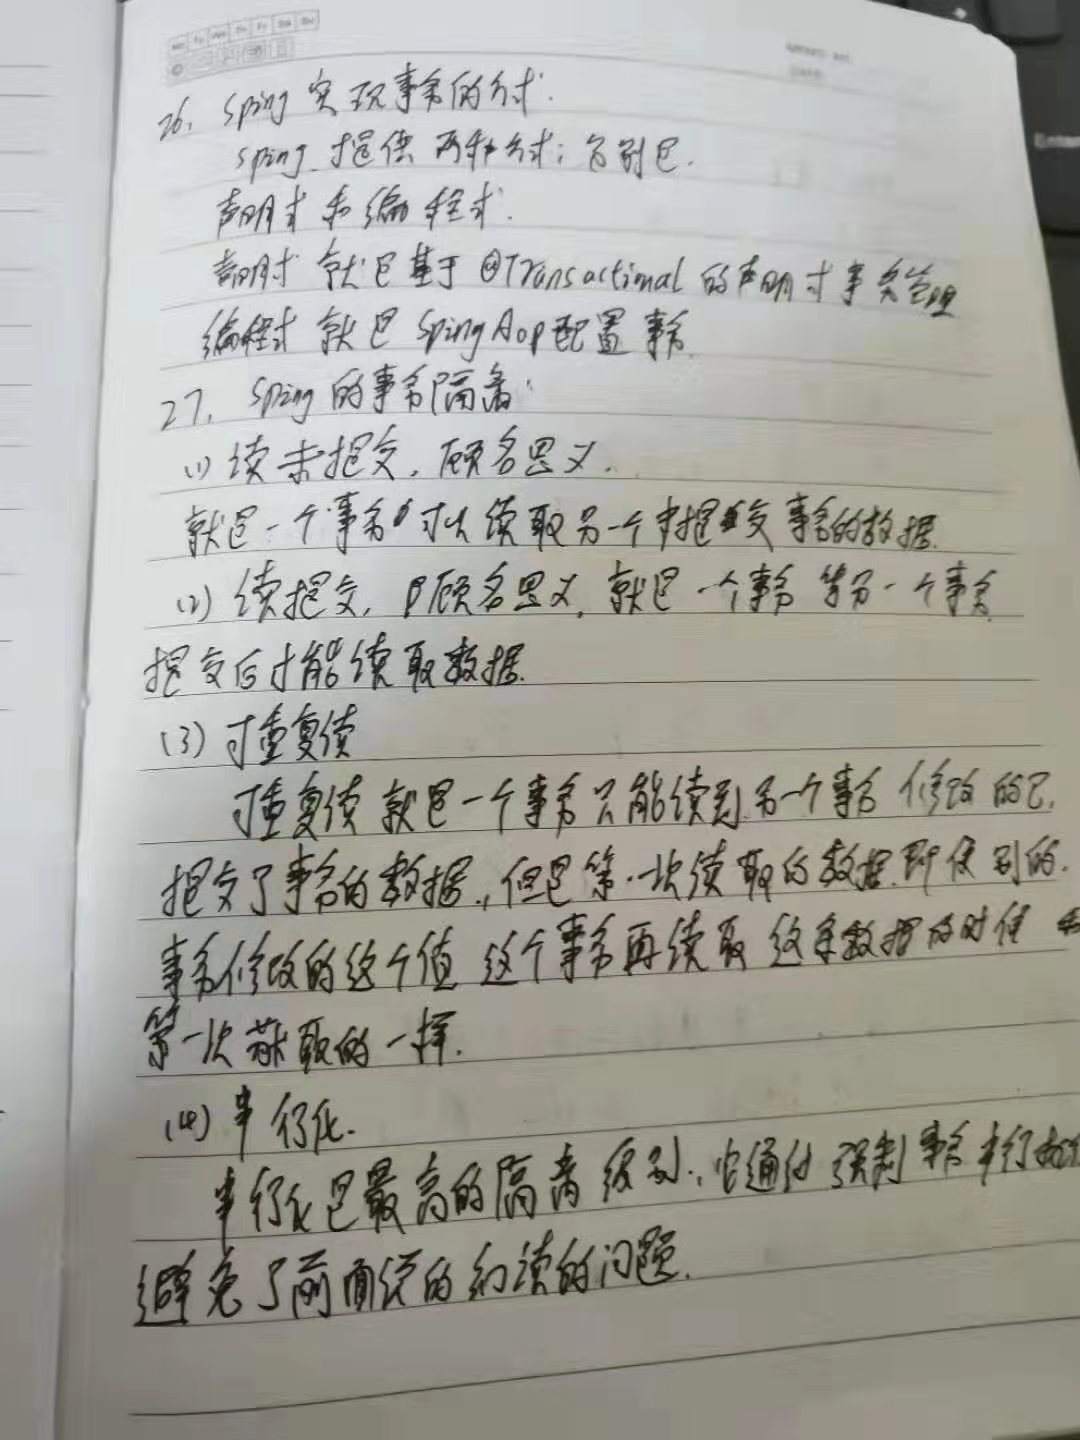 26、Sping 实现事务的方式.
Sping 提供 两种方式: 分别是.
声明式 和 编程式.
声明式 就是基于 @Transactional 的声明式事务管理
编程式 就是 SpingAop配置 事务
27、Sping 的事务隔离:
(1) 读未提交, 顾名思义,
就是一个事务可以读取另一个未提交事务的数据.
(2) 读提交, 顾名思义, 就是 一个事务 等另一个事务
提交后才能读取数据.
(3) 可重复读
可重复读 就是一个事务只能读到另一个事务 修改的已
提交了事务的数据, 但是第一次读取的数据, 即使别的
事务修改的这个值 这个事务再读取 这条数据的时候 和
第一次 获取的一样.
(4) 串行化.
串行化是最高的隔离级别, 它通过 强制 事务 串行
避免了前面说的幻读的问题.